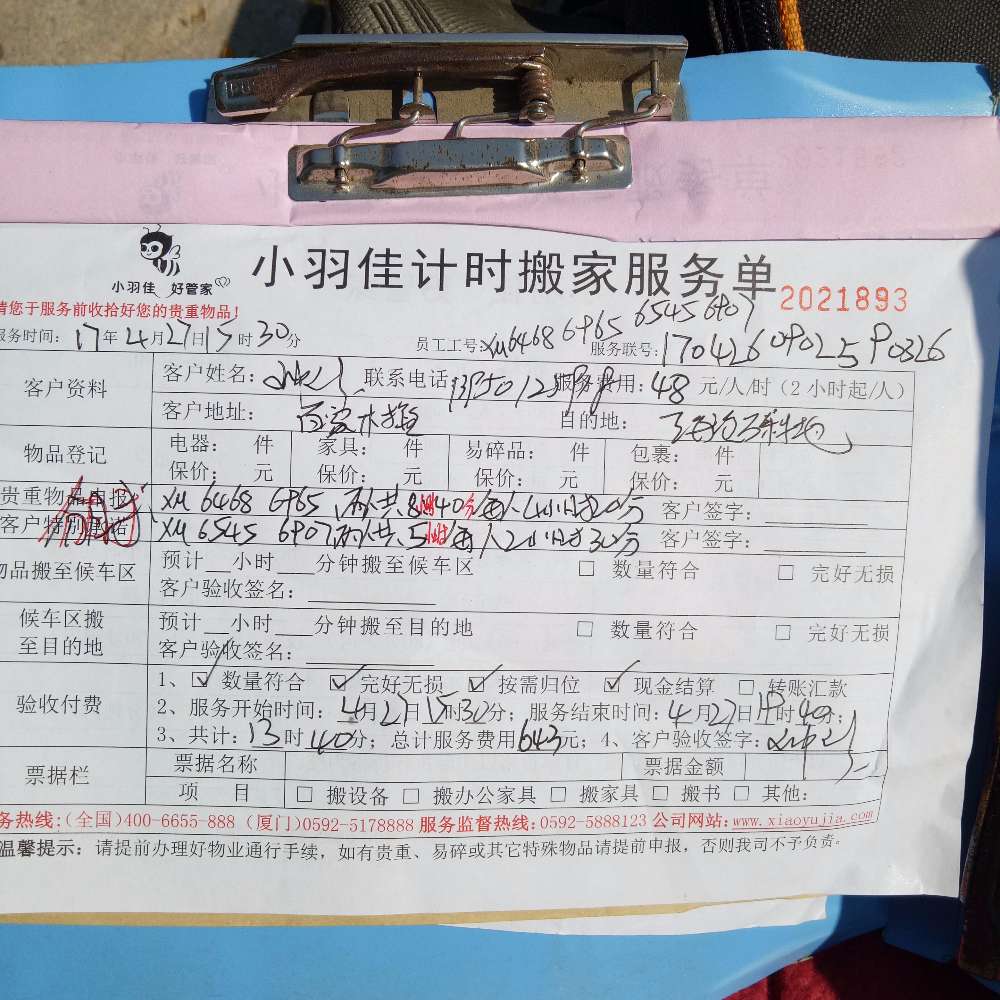 小羽佳 好管家
小羽佳计时搬家服务单
2021893
请您于服务前收拾好您的贵重物品!
服务时间: 17年4月27日15时30分 员工工号: XM6468 6965 6545 6907 服务联号: 170426
客户资料 客户姓名: 联系电话: 服务费用: 48 元/人/时 (2小时起/人)
客户地址: 目的地:
物品登记 电器: 件 家具: 件 易碎品: 件 包裹: 件
保价: 元 保价: 元 保价: 元 保价: 元
贵重物品申报 XM 6468 6965, 两人共8小时40分 每人4小时20分 客户签字:
客户特别承诺 XM 6545 6907, 两人共5小时 每人2小时30分 客户签字:
物品搬至候车区 预计__小时___分钟搬至候车区 □ 数量符合 □ 完好无损
客户验收签名:
候车区搬至目的地 预计__小时___分钟搬至目的地 □ 数量符合 □ 完好无损
客户验收签名:
验收付费 1、☑ 数量符合 ☑ 完好无损 ☑ 按需归位 ☑ 现金结算 □ 转账汇款
2、服务开始时间: 4月27日15时30分; 服务结束时间: 4月27日19时40分;
3、共计: 13时40分; 总计服务费用643元; 4、客户验收签字:
票据栏 票据名称 票据金额
项 目 □ 搬设备 □ 搬办公家具 □ 搬家具 □ 搬书 □ 其他:
务热线:(全国)400-6655-888 (厦门)0592-5178888 服务监督热线:0592-5888123 公司网站:www.xiaoyujia.com
温馨提示: 请提前办理好物业通行手续, 如有贵重、易碎或其它特殊物品请提前申报, 否则我司不予负责。